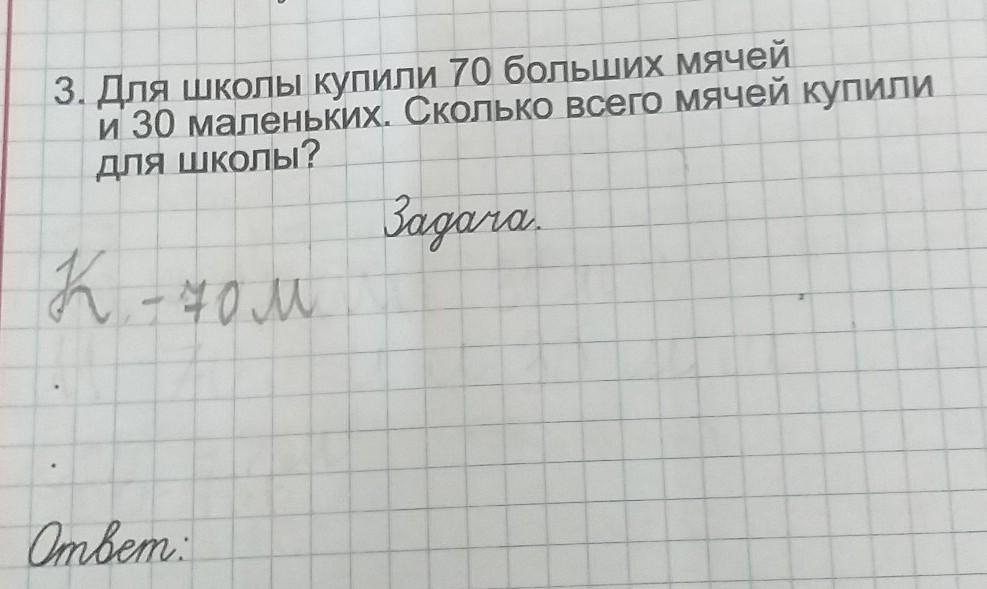 3. Для школы купили 70 больших мячей
и 30 маленьких. Сколько всего мячей купили
для школы?
Задача.
К - 70 м
Ответ: